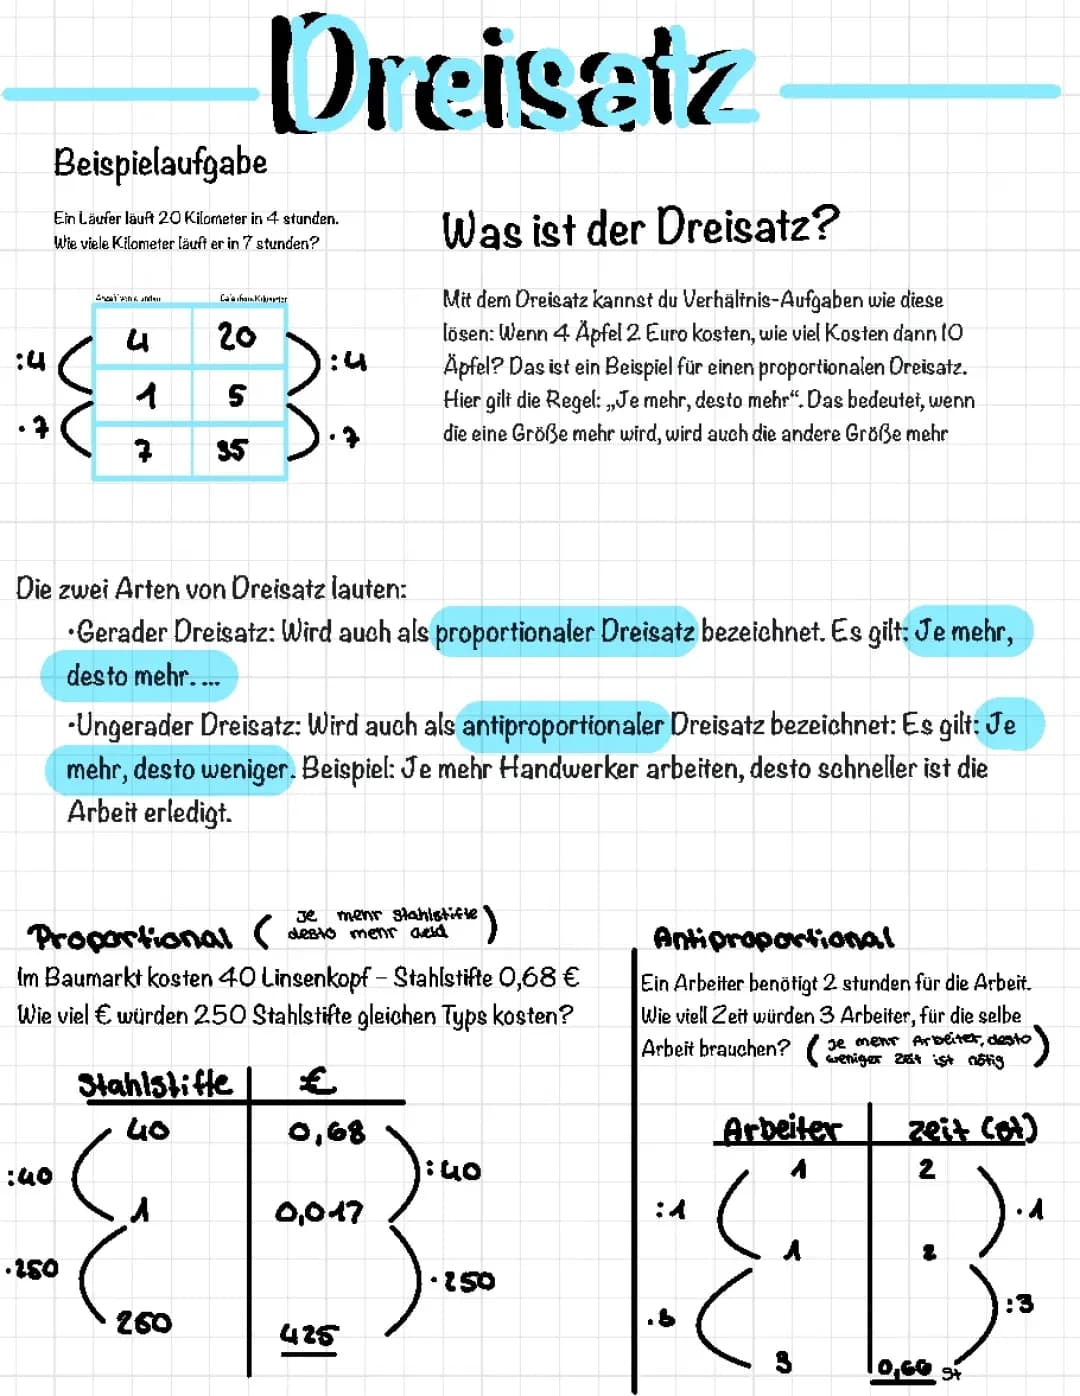 Dreisatz
Beispielaufgabe
Ein Läufer läuft 20 Kilometer in 4 stunden.
Wie viele Kilometer läuft er in 7 stunden?
Was ist der Dreisatz?
Mit dem Dreisatz kannst du Verhältnis-Aufgaben wie diese
lösen: Wenn 4 Äpfel 2 Euro kosten, wie viel Kosten dann 10
Äpfel? Das ist ein Beispiel für einen proportionalen Dreisatz.
Hier gilt die Regel: „Je mehr, desto mehr“. Das bedeutet, wenn
die eine Größe mehr wird, wird auch die andere Größe mehr
4 20
:4 :4
1 5
·7 ·7
7 35
Die zwei Arten von Dreisatz lauten:
•Gerader Dreisatz: Wird auch als proportionaler Dreisatz bezeichnet. Es gilt: Je mehr,
desto mehr. ...
•Ungerader Dreisatz: Wird auch als antiproportionaler Dreisatz bezeichnet: Es gilt: Je
mehr, desto weniger. Beispiel: Je mehr Handwerker arbeiten, desto schneller ist die
Arbeit erledigt.
Proportional ( Je mehr Stahlstifte
desto mehr Geld )
Im Baumarkt kosten 40 Linsenkopf – Stahlstifte 0,68 €
Wie viel € würden 250 Stahlstifte gleichen Typs kosten?
Stahlstifte €
40 0,68
:40 :40
1 0,017
·250 ·250
250 425
Antiproportional
Ein Arbeiter benötigt 2 stunden für die Arbeit.
Wie viell Zeit würden 3 Arbeiter, für die selbe
Arbeit brauchen? ( Je mehr Arbeiter, desto
weniger Zeit ist nötig )
Arbeiter Zeit (St)
1 2
:1 ·1
1 2
:3
3 0,66 St